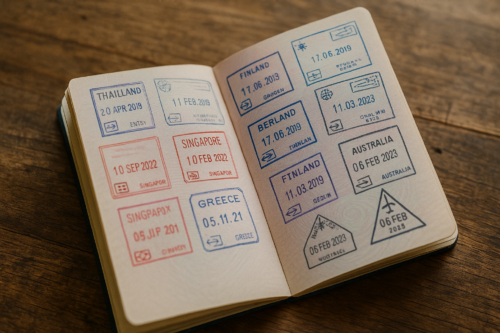 THAILLAND
20 APR 2019
ENTRY
11 FEB 2019
10 SEP 2022
SINGAPUR
SINGAPORE
10 FEB 2022
SINGAPUR
SINGPAPIX
05 JIP 201
GREECE
05.11.21
GREECE
FINLAND
17.06.2019
17.06.2019
BERLAND
17.06.2019
11.03.2023
FINLAND
11.03.2019
AUSTRALIA
06 FEB 2023
AUSTRALIA
06 FEB 2023
06 FEB
2023